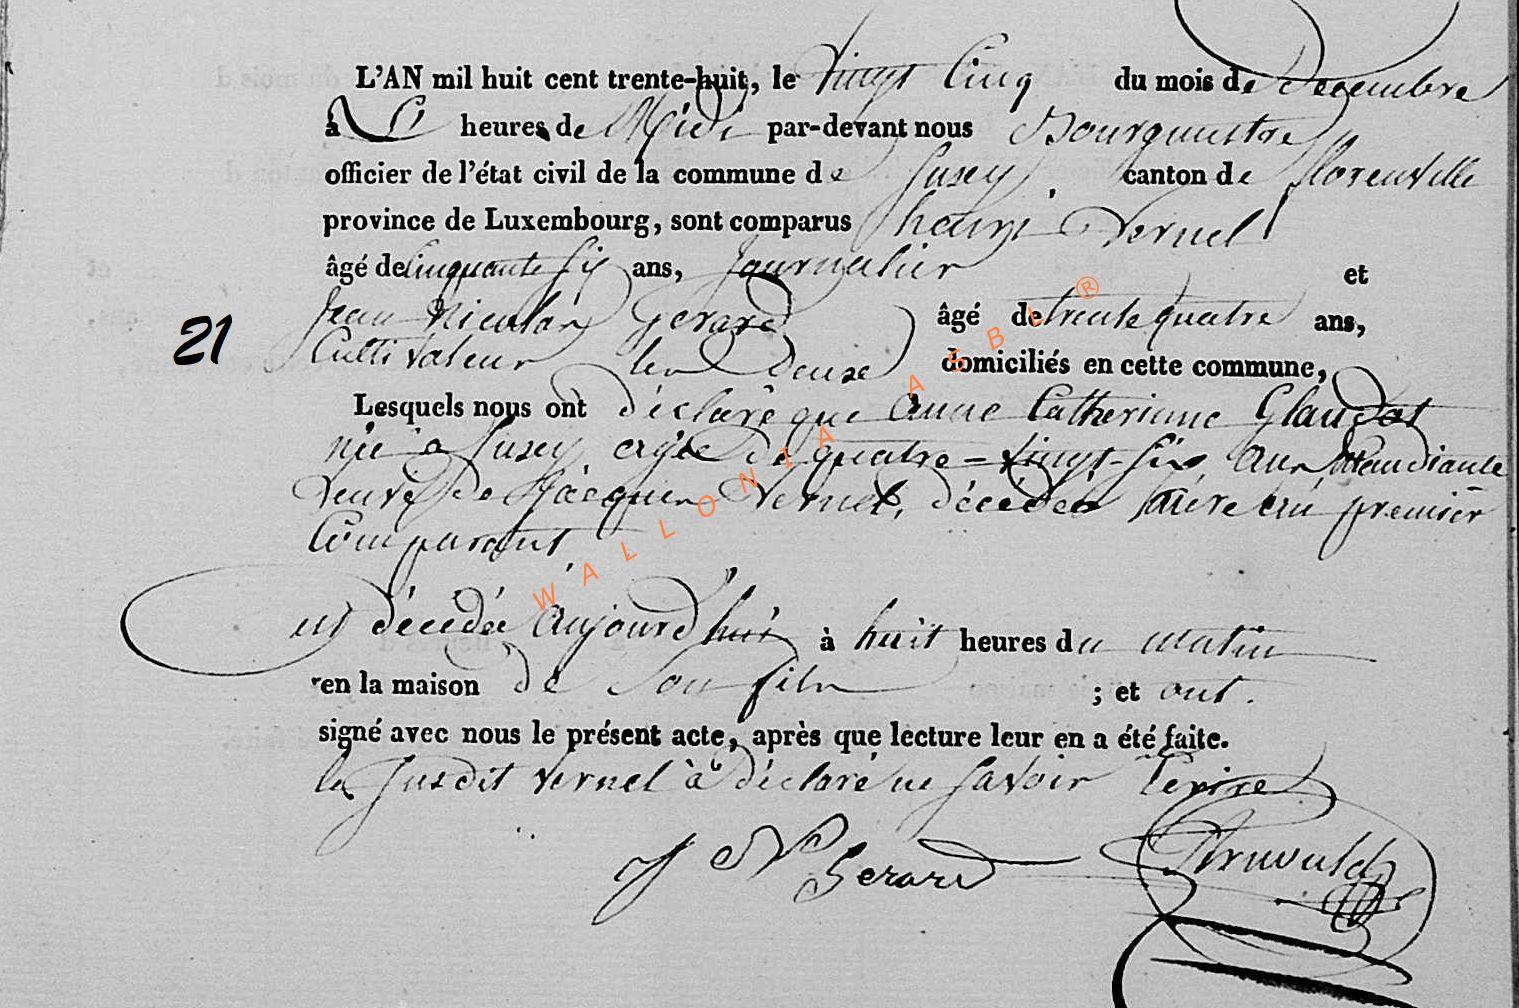 L'AN mil huit cent trente-huit, le Vingt Cinq du mois de Decembre
à heures de Midi par-devant nous Bourgmestre
officier de l'état civil de la commune de Suxey canton de florenville
province de Luxembourg, sont comparus henry Vernel
âgé de Cinquante Six ans, Journalier et
21
Jean Nicolas Gerard âgé de trente quatre ans,
Cultivateur les Deux domiciliés en cette commune,
Lesquels nous ont déclaré que Anne Catherinne Glaudot
née a Suxey agée de quatre-vingt-six ans Mandiante
Veuve de Jacques Vernel, décédée premier
Comparant
est décédée aujourd'hui à huit heures du matin
en la maison de son fils ; et ont.
signé avec nous le présent acte, après que lecture leur en a été faite.
le Susdit Vernel à déclaré ne savoir Ecrire
J N Gerard
WALLONIA ASBL ®